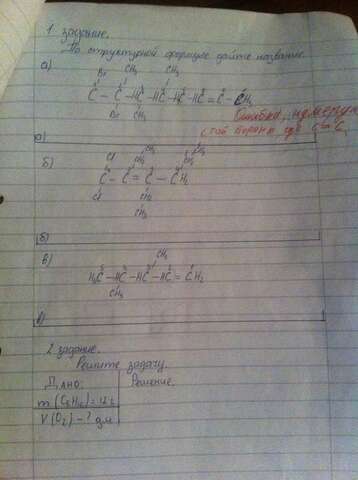 1 задание.
По структурной формуле дайте название.
а)
Br CH₃ CH₃
C - C - HC - HC - HC - HC = C - CH₃
Br CH₃
Ошибка, нумеруй с
той стороны где
а)
б)
Cl CH₃ CH₃
CH₂ CH₂
C - C = C - CH₂
Cl CH₂
CH₃
б)
в)
CH₃
H₃C - HC - HC - HC = CH₂
CH₃
в)
2 задание.
Решите задачу.
Дано: Решение.
m = 12 г
V(O₂) - ? дм